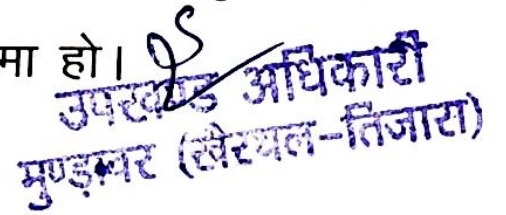 मा हो।
उपखण्ड अधिकारी
मुण्डावर (खैरथल-तिजारा)